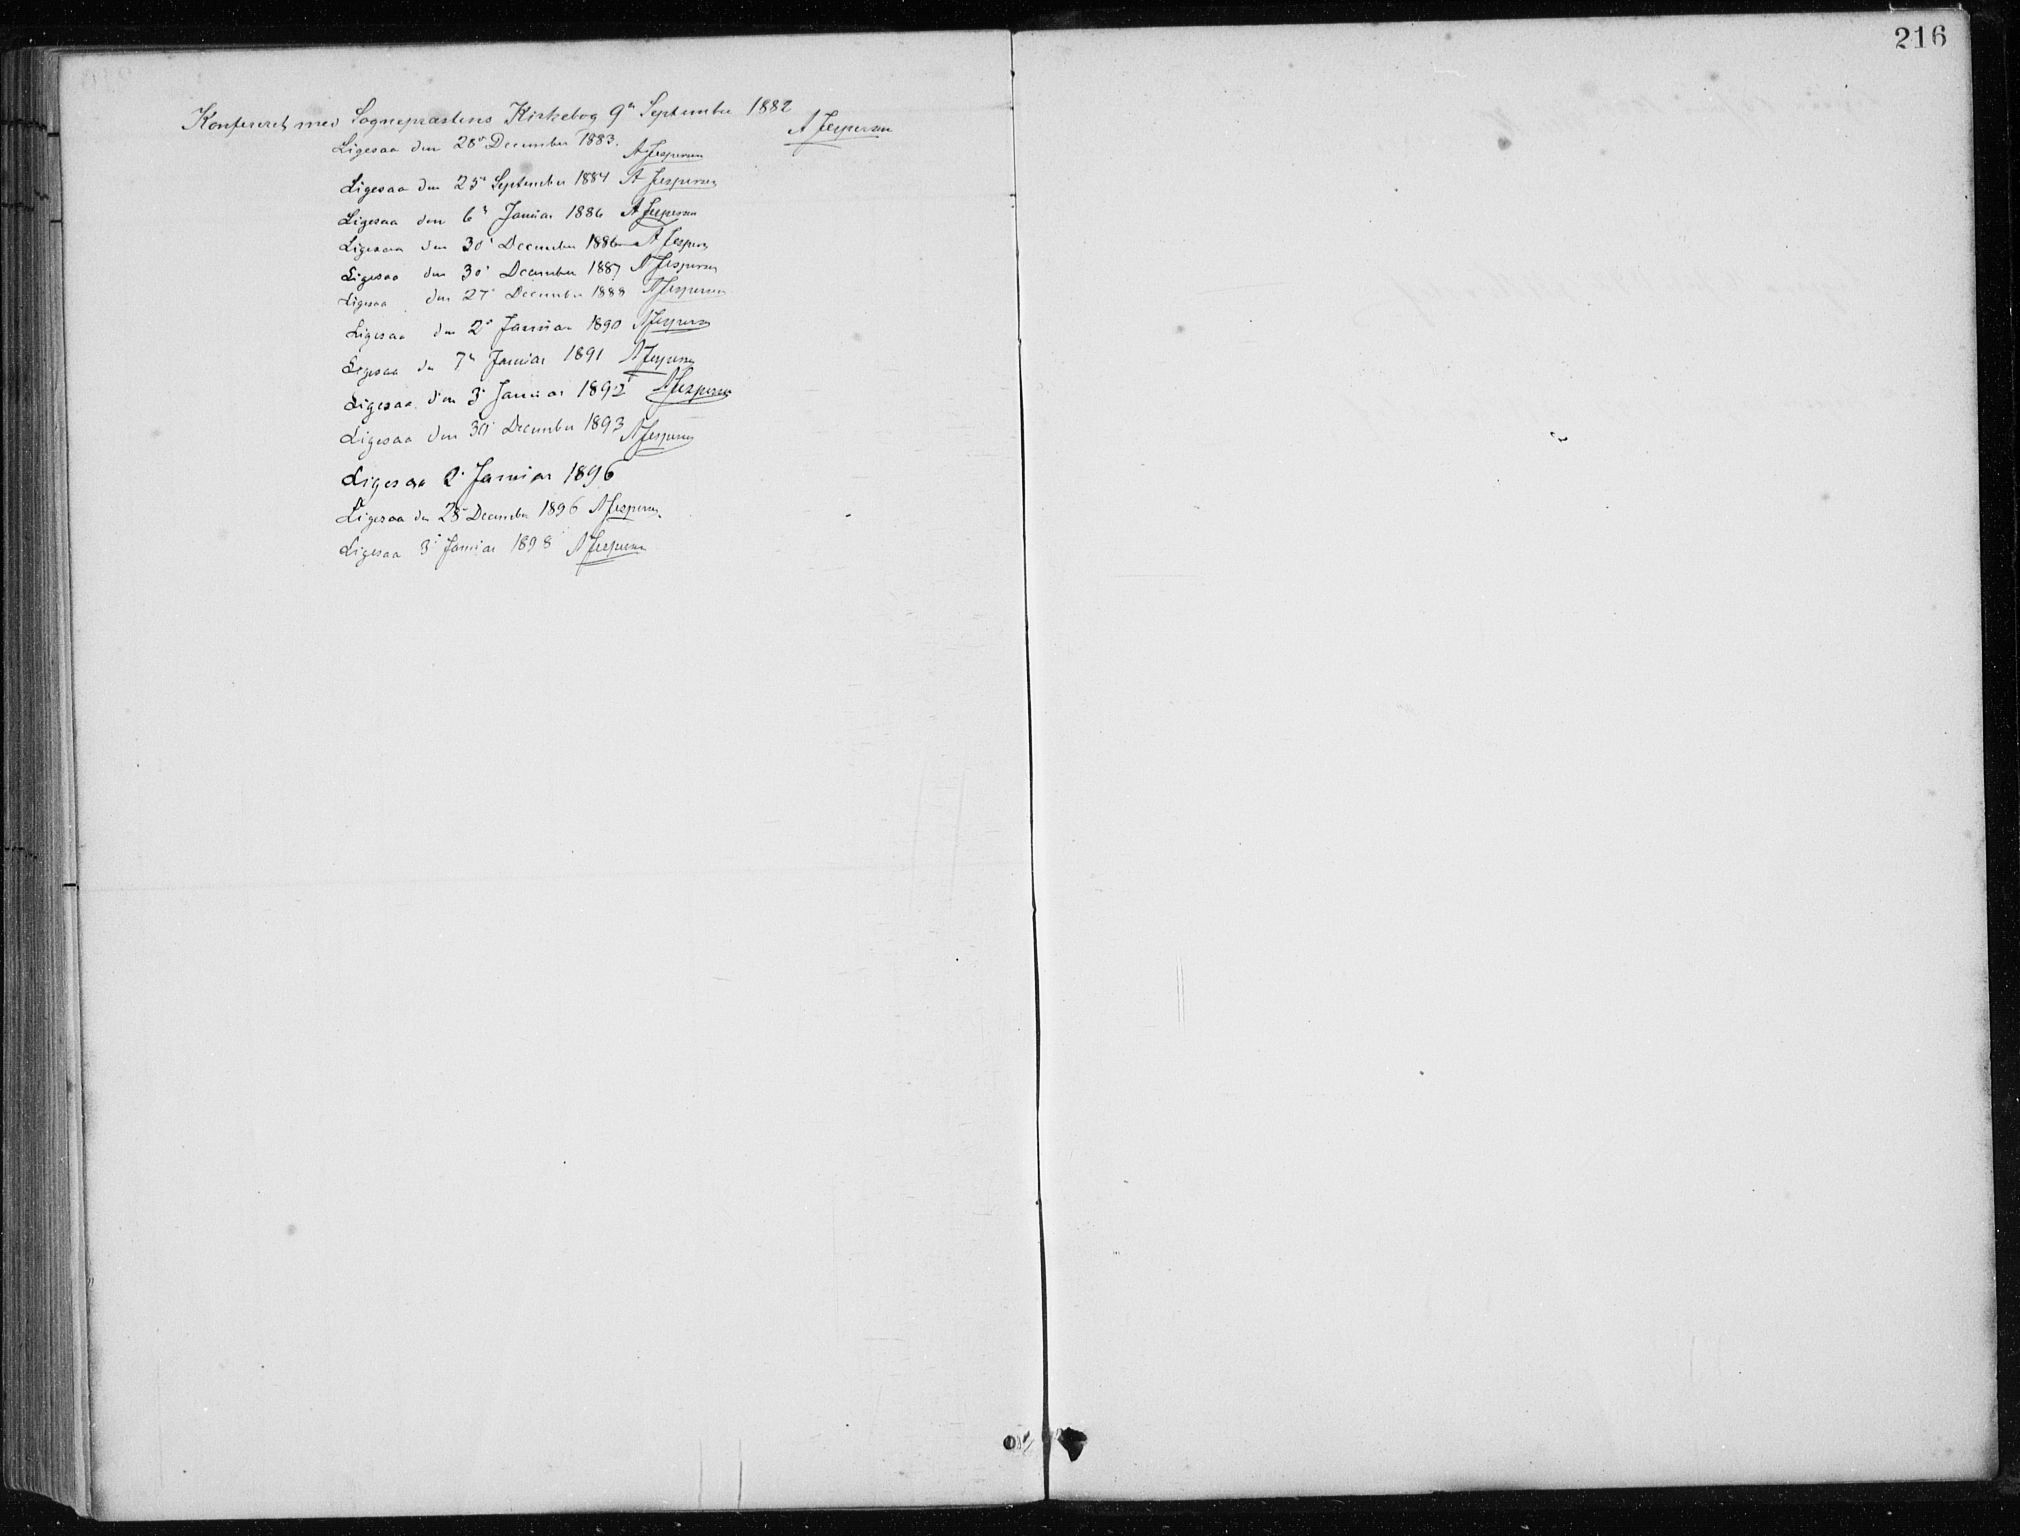 216
Konfereret med Sognepræstens Kirkebog 9de September 1882
A Jespersen
Ligesaa den 28de December 1883. A Jespersen
Ligesaa den 25de September 1884 A Jespersen
Ligesaa den 6te Januar 1886 A Jespersen
Ligesaa den 30' December 1886 A Jespersen
Ligesaa den 30' December 1887 A Jespersen
Ligesaa den 27' December 1888 A Jespersen
Ligesaa den 2' Januar 1890 A Jespersen
Ligesaa den 7de Januar 1891 A Jespersen
Ligesaa den 3' Januar 1892 A Jespersen
Ligesaa den 30' December 1893 A Jespersen
Ligesaa 2' Januar 1896
Ligesaa den 28' December 1896 A Jespersen
Ligesaa 3' Januar 1898 A Jespersen